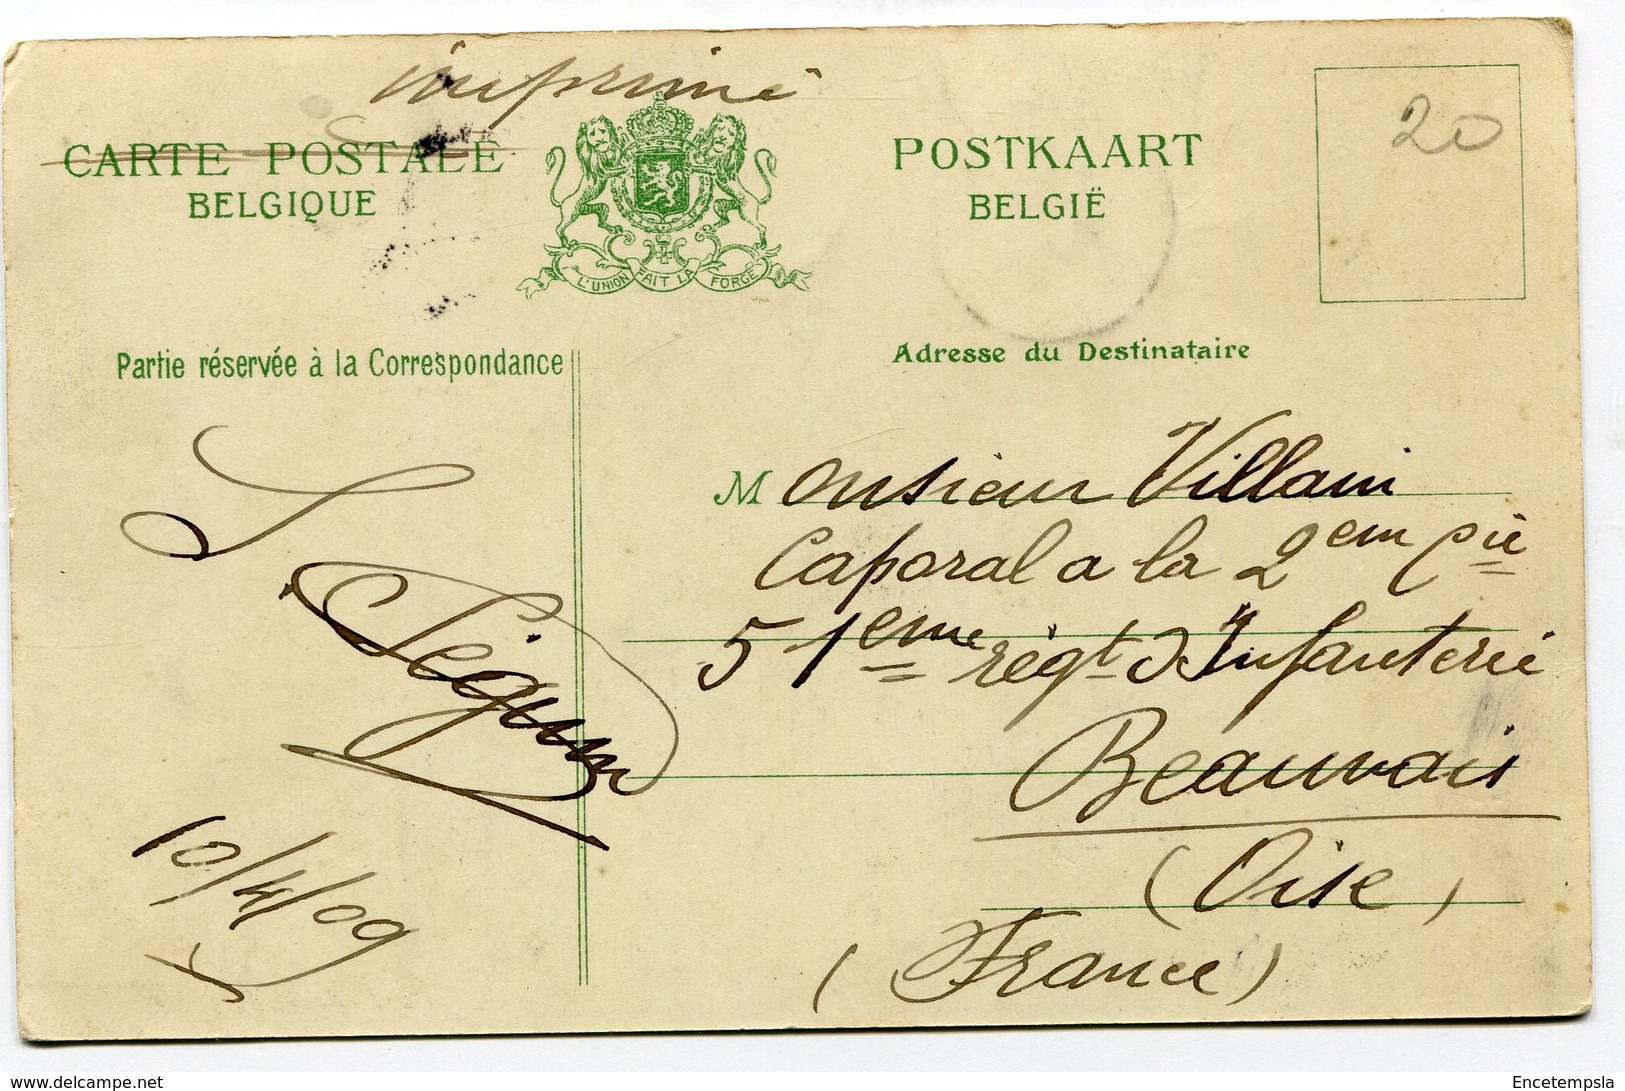 imprimé
CARTE POSTALE
BELGIQUE
L'UNION FAIT LA FORCE
POSTKAART
BELGIË
20
Partie réservée à la Correspondance
Adresse du Destinataire
Monsieur Villain
Caporal a la 2em Cie
51eme regt d'Infanterie
Beauvais
(Oise)
(France)
Ségum
10/4/09
delcampe.net
Encetempsla